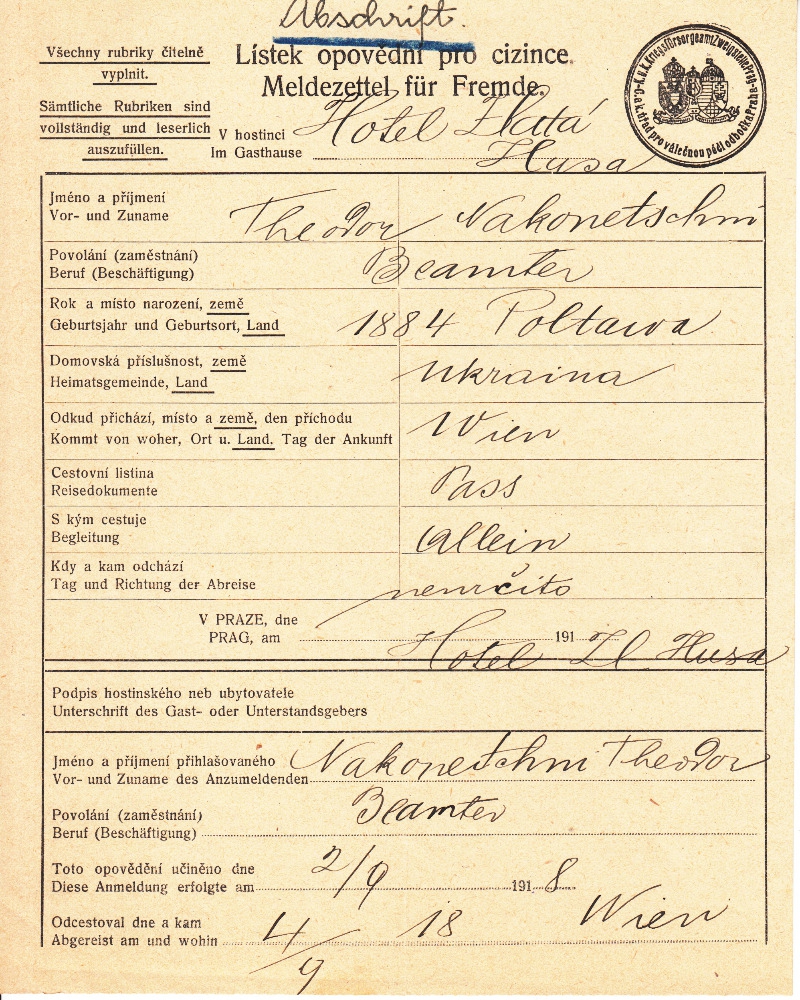 Abschrift.
Všechny rubriky čitelně
vyplnit.
Sämtliche Rubriken sind
vollständig und leserlich
auszufüllen.
Lístek opovědní pro cizince.
Meldezettel für Fremde.
V hostinci
Im Gasthause
Hotel Zlatá
Husa
K.u.k. Kriegsfürsorgeamt Zweigstelle Prag
C. a k. úřad pro válečnou péči odbočka Praha
Jméno a příjmení
Vor- und Zuname
Theodor Nakonetschni
Povolání (zaměstnání)
Beruf (Beschäftigung)
Beamter
Rok a místo narození, země
Geburtsjahr und Geburtsort, Land
1884 Poltawa
Domovská příslušnost, země
Heimatsgemeinde, Land
Ukraina
Odkud přichází, místo a země, den příchodu
Kommt von woher, Ort u. Land. Tag der Ankunft
Wien
Cestovní listina
Reisedokumente
Pass
S kým cestuje
Begleitung
Allein
Kdy a kam odchází
Tag und Richtung der Abreise
neurčito
V PRAZE, dne
PRAG, am 191
Hotel Zl Husa
Podpis hostinského neb ubytovatele
Unterschrift des Gast- oder Unterstandsgebers
Jméno a příjmení přihlašovaného
Vor- und Zuname des Anzumeldenden
Nakonetschni Theodor
Povolání (zaměstnání)
Beruf (Beschäftigung)
Beamter
Toto opovědění učiněno dne
Diese Anmeldung erfolgte am 2/9 1918
Odcestoval dne a kam
Abgereist am und wohin 4/9 18 Wien